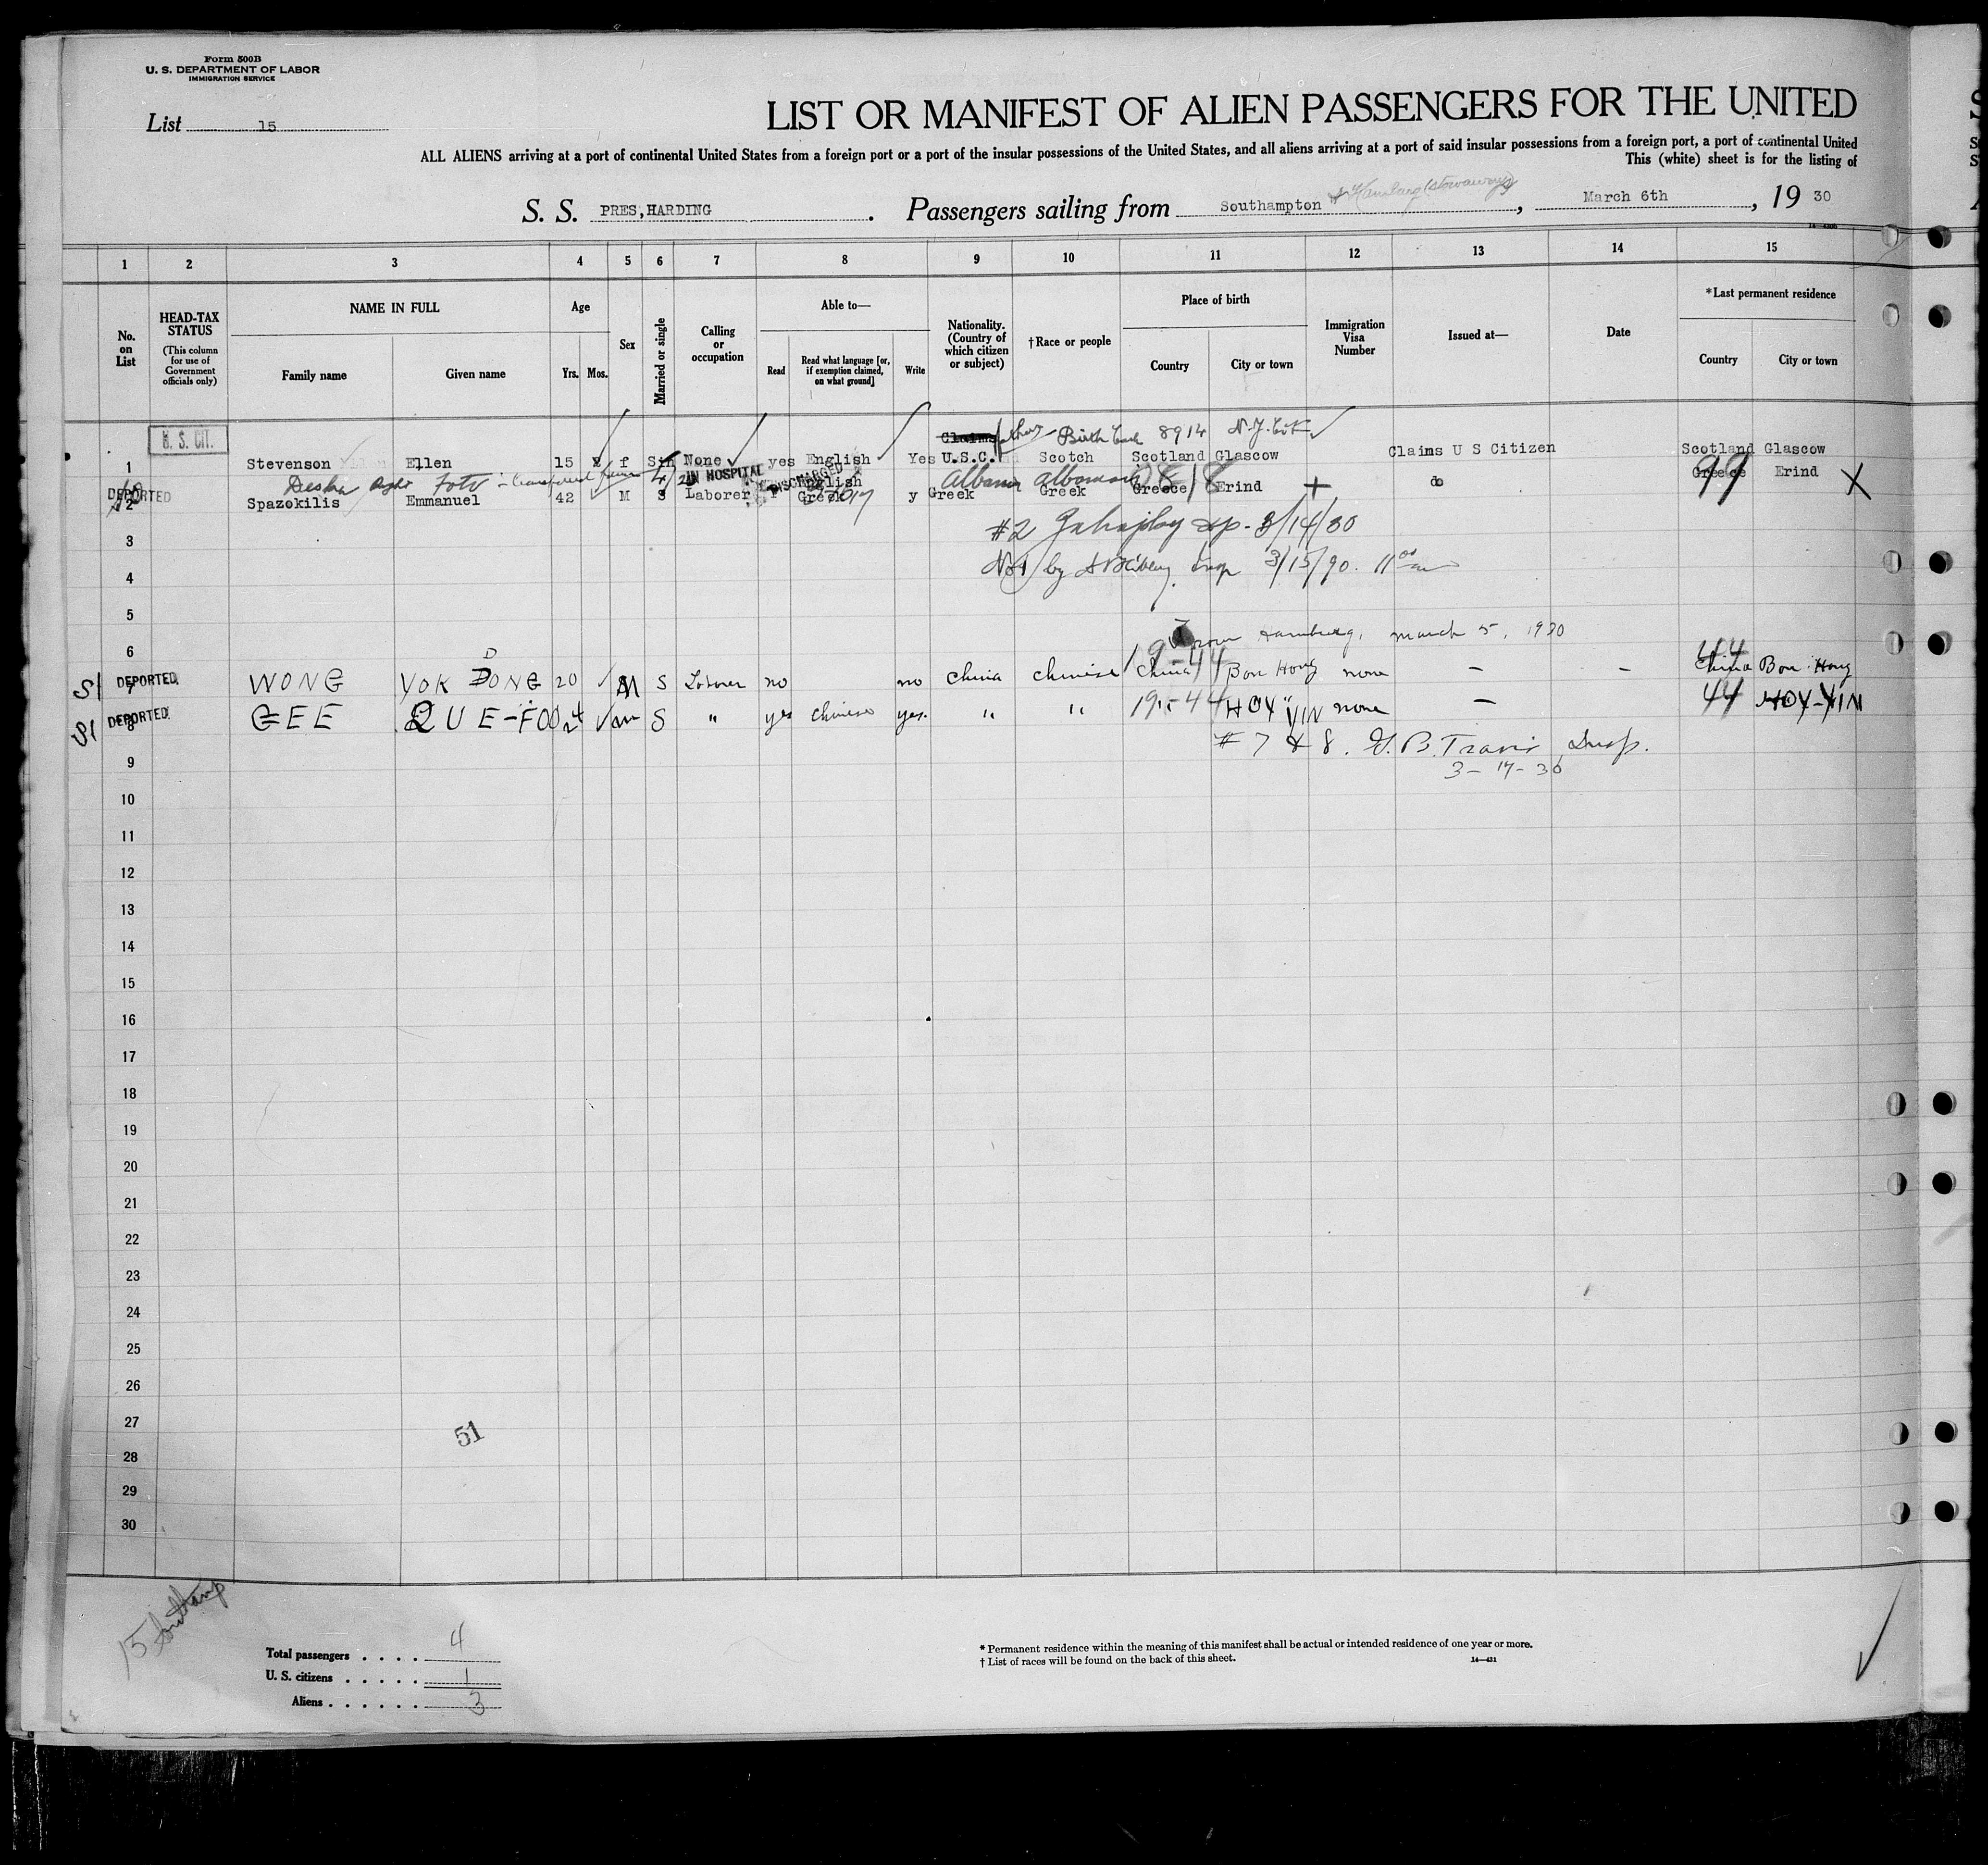 Form 500B
U. S. DEPARTMENT OF LABOR
IMMIGRATION SERVICE
List 15
LIST OR MANIFEST OF ALIEN PASSENGERS FOR THE UNITED
ALL ALIENS arriving at a port of continental United States from a foreign port or a port of the insular possessions of the United States, and all aliens arriving at a port of said insular possessions from a foreign port, a port of continental United
This (white) sheet is for the listing of
S. S. PRES,HARDING . Passengers sailing from Southampton (stowaways) , March 6th , 19 30
1 2 3 4 5 6 7 8 9 10 11 12 13 14 15
No. on List
HEAD-TAX STATUS (This column for use of Government officials only)
NAME IN FULL
Family name Given name
Age
Yrs. Mos.
Sex
Married or single
Calling or occupation
Able to—
Read
Read what language [or, if exemption claimed, on what ground]
Write
Nationality. (Country of which citizen or subject)
†Race or people
Place of birth
Country City or town
Immigration Visa Number
Issued at—
Date
*Last permanent residence
Country City or town
U. S. CIT.
Claims Birth 8914 N.Y.
1 Stevenson Ellen 15 f Sin None yes English Yes U.S.C. Scotch Scotland Glascow Claims U S Citizen Scotland Glascow
IN HOSPITAL DISCHARGED
Foto Albania 99
DEPORTED
2 Spazokilis Emmanuel 42 M S Laborer Greek y Greek Greek Greece Erind do Greece Erind X
3 #2 3/14/30
4 by 3/15/90. 11 00 am
5
6 From Hamburg, march 5, 1930
19-44 44
SI DEPORTED. 7 WONG YOK DONG 20 M S Laborer no no China Chinese China Bon Hong none - - China Bon Hong
SI DEPORTED. 8 GEE QUE-FOO 24 m S " yes Chinese yes. " " 19-44 HOY YIN none - 44 HOY-YIN
# 7 & 8. G. B. Travis Insp.
9 3-17-30
10
11
12
13
14
15
16
17
18
19
20
21
22
23
24
25
26
27
51
28
29
30
15 Southamp
Total passengers . . . . 4
U. S. citizens . . . . . 1
Aliens . . . . . . 3
* Permanent residence within the meaning of this manifest shall be actual or intended residence of one year or more.
† List of races will be found on the back of this sheet. 14—431